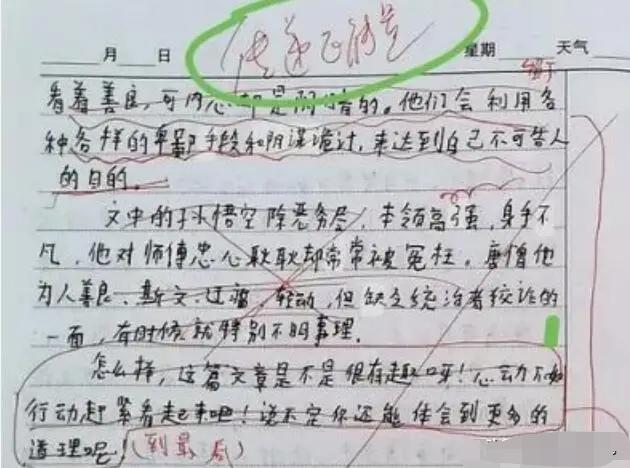 传递正能量
月 日 星期 天气
看着善良,可内心却是阴暗的。他们会利用各
种各样的卑鄙手段和阴谋诡计,来达到自己不可告人
的目的。
文中的孙悟空除恶务尽,本领高强,身手不
凡,他对师傅忠心耿耿却常常被冤枉。唐僧他
为人善良、斯文、,但缺乏统治者狡诈的
一面,有时候就特别不明事理。
怎么样,这篇文章是不是很有趣呀!心动不如
行动赶紧看起来吧!说不定你还能体会到更多的
道理呢(到最后)